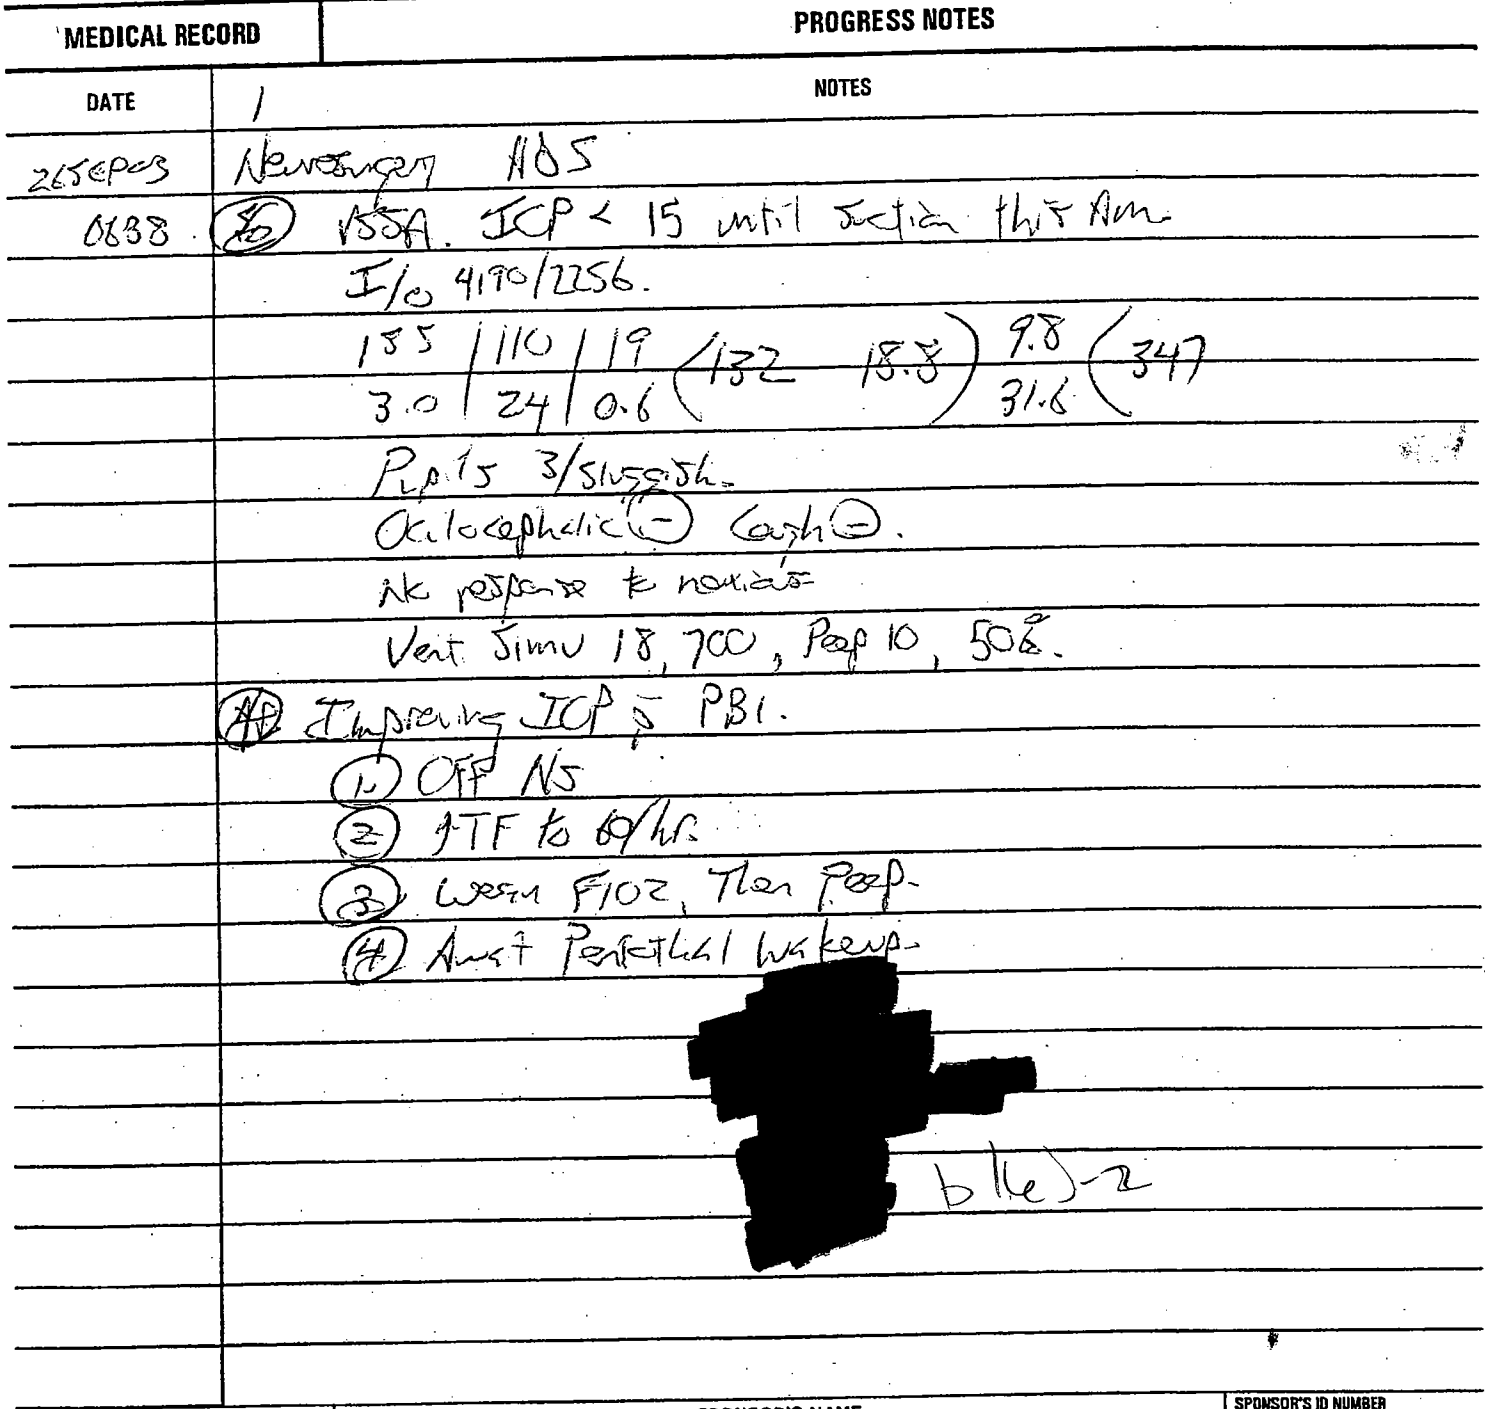 MEDICAL RECORD
PROGRESS NOTES
DATE
NOTES
26SEP03 Neurosurgery
0638 VSSA. ICP < 15 until suction this Am.
I/O 4190/2256.
110 / 19 132 18.8 9.8 347
3.0 / 24 / 0.6 31.6
Pupils 3/sluggish.
Oculocephalic (-) Cough (-).
No response to noxious
Vent Simv 18, 700, Peep 10, 50%.
Improving ICP PBI.
1. Off NS
2 ↑TF to 60/hr.
3. Wean FIO2, Then Peep.
4 Await Pentothal wakeup.
b(6)-2
SPONSOR'S NAME
SPONSOR'S ID NUMBER